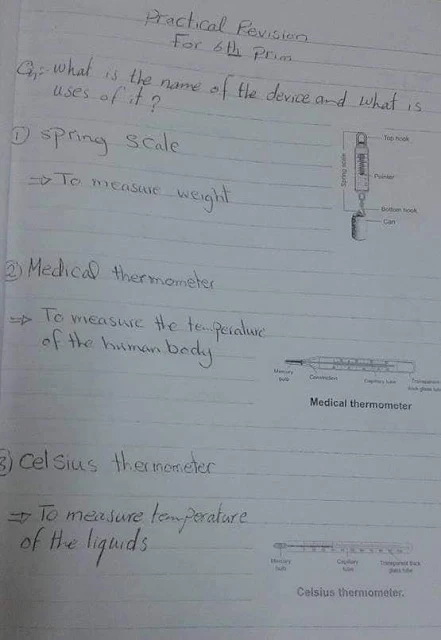 Practical Revision
For 6th Prim
Q1:- what is the name of the device and what is
uses of it?
① Spring Scale
⇒ To measure weight
Spring scale
Top hook
Pointer
Bottom hook
Can
② Medical thermometer
⇒ To measure the temperature
of the human body
Mercury
bulb
Constriction
Capillary tube
Transparent
thick glass tube
Medical thermometer
3) Celsius thermometer
⇒ To measure temperature
of the liquids
Mercury
bulb
Capillary
tube
Transparent thick
glass tube
Celsius thermometer.